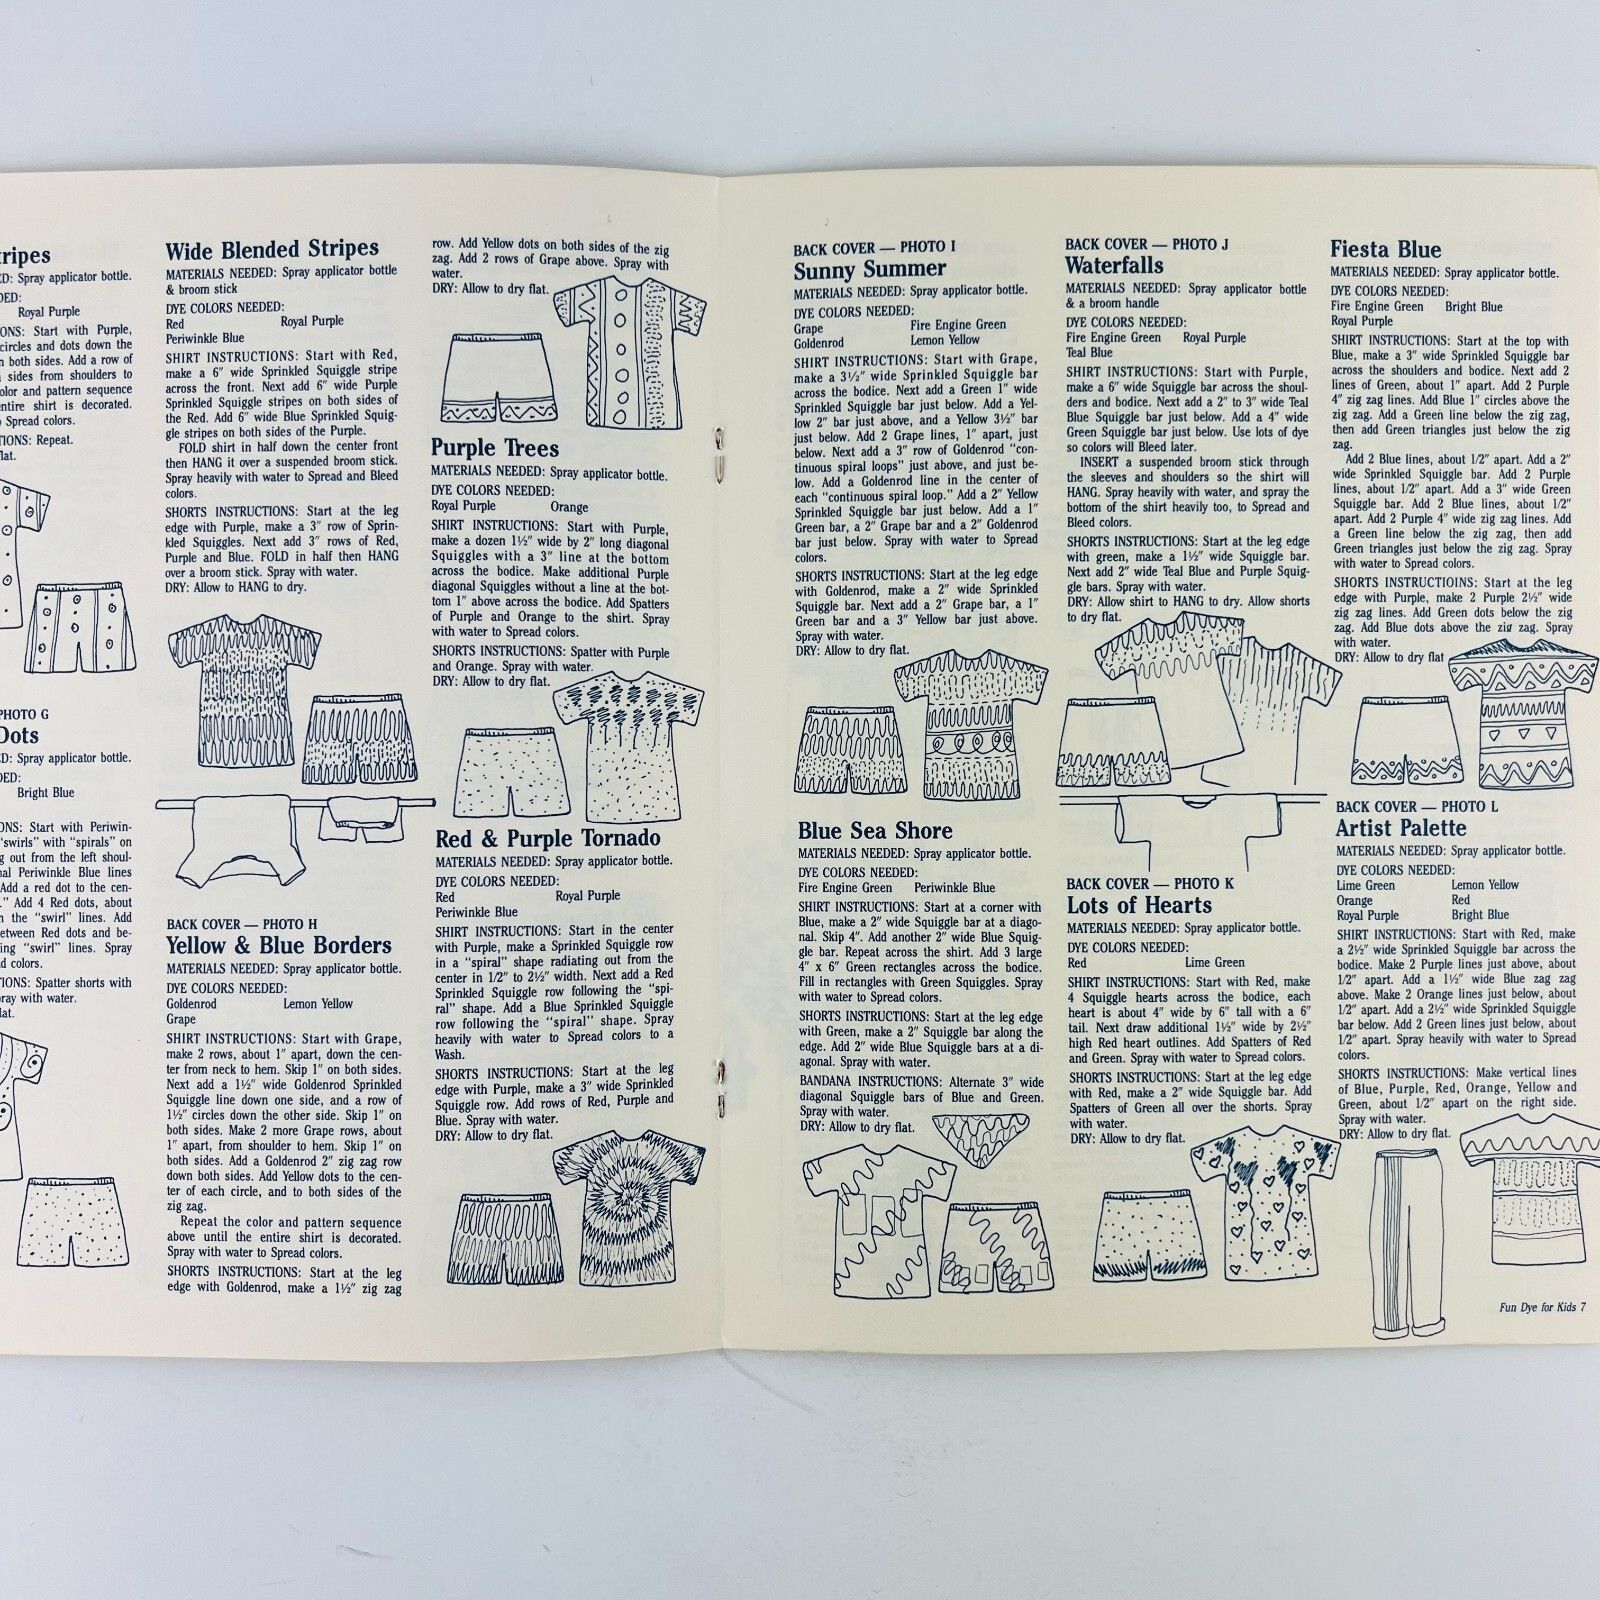 tripes
ED: Spray applicator bottle.
DED:
Royal Purple
ONS: Start with Purple,
circles and dots down the
n both sides. Add a row of
sides from shoulders to
olor and pattern sequence
entire shirt is decorated.
o Spread colors.
TIONS: Repeat.
flat.
PHOTO G
Dots
ED: Spray applicator bottle.
DED:
Bright Blue
ONS: Start with Periwin-
"swirls" with "spirals" on
g out from the left shoul-
nal Periwinkle Blue lines
Add a red dot to the cen-
." Add 4 Red dots, about
n the "swirl" lines. Add
etween Red dots and be-
ing "swirl" lines. Spray
d colors.
IONS: Spatter shorts with
ray with water.
lat.
Wide Blended Stripes
MATERIALS NEEDED: Spray applicator bottle
& broom stick
DYE COLORS NEEDED:
Red Royal Purple
Periwinkle Blue
SHIRT INSTRUCTIONS: Start with Red,
make a 6" wide Sprinkled Squiggle stripe
across the front. Next add 6" wide Purple
Sprinkled Squiggle stripes on both sides of
the Red. Add 6" wide Blue Sprinkled Squig-
gle stripes on both sides of the Purple.
FOLD shirt in half down the center front
then HANG it over a suspended broom stick.
Spray heavily with water to Spread and Bleed
colors.
SHORTS INSTRUCTIONS: Start at the leg
edge with Purple, make a 3" row of Sprin-
kled Squiggles. Next add 3" rows of Red,
Purple and Blue. FOLD in half then HANG
over a broom stick. Spray with water.
DRY: Allow to HANG to dry.
BACK COVER — PHOTO H
Yellow & Blue Borders
MATERIALS NEEDED: Spray applicator bottle.
DYE COLORS NEEDED:
Goldenrod Lemon Yellow
Grape
SHIRT INSTRUCTIONS: Start with Grape,
make 2 rows, about 1" apart, down the cen-
ter from neck to hem. Skip 1" on both sides.
Next add a 1½" wide Goldenrod Sprinkled
Squiggle line down one side, and a row of
1½" circles down the other side. Skip 1" on
both sides. Make 2 more Grape rows, about
1" apart, from shoulder to hem. Skip 1" on
both sides. Add a Goldenrod 2" zig zag row
down both sides. Add Yellow dots to the cen-
ter of each circle, and to both sides of the
zig zag.
Repeat the color and pattern sequence
above until the entire shirt is decorated.
Spray with water to Spread colors.
SHORTS INSTRUCTIONS: Start at the leg
edge with Goldenrod, make a 1½" zig zag
row. Add Yellow dots on both sides of the zig
zag. Add 2 rows of Grape above. Spray with
water.
DRY: Allow to dry flat.
Purple Trees
MATERIALS NEEDED: Spray applicator bottle.
DYE COLORS NEEDED:
Royal Purple Orange
SHIRT INSTRUCTIONS: Start with Purple,
make a dozen 1½" wide by 2" long diagonal
Squiggles with a 3" line at the bottom
across the bodice. Make additional Purple
diagonal Squiggles without a line at the bot-
tom 1" above across the bodice. Add Spatters
of Purple and Orange to the shirt. Spray
with water to Spread colors.
SHORTS INSTRUCTIONS: Spatter with Purple
and Orange. Spray with water.
DRY: Allow to dry flat.
Red & Purple Tornado
MATERIALS NEEDED: Spray applicator bottle.
DYE COLORS NEEDED:
Red Royal Purple
Periwinkle Blue
SHIRT INSTRUCTIONS: Start in the center
with Purple, make a Sprinkled Squiggle row
in a "spiral" shape radiating out from the
center in 1/2" to 2½" width. Next add a Red
Sprinkled Squiggle row following the "spi-
ral" shape. Add a Blue Sprinkled Squiggle
row following the "spiral" shape. Spray
heavily with water to Spread colors to a
Wash.
SHORTS INSTRUCTIONS: Start at the leg
edge with Purple, make a 3" wide Sprinkled
Squiggle row. Add rows of Red, Purple and
Blue. Spray with water.
DRY: Allow to dry flat.
BACK COVER — PHOTO I
Sunny Summer
MATERIALS NEEDED: Spray applicator bottle.
DYE COLORS NEEDED:
Grape Fire Engine Green
Goldenrod Lemon Yellow
SHIRT INSTRUCTIONS: Start with Grape,
make a 3½" wide Sprinkled Squiggle bar
across the bodice. Next add a Green 1" wide
Sprinkled Squiggle bar just below. Add a Yel-
low 2" bar just above, and a Yellow 3½" bar
just below. Add 2 Grape lines, 1" apart, just
below. Next add a 3" row of Goldenrod "con-
tinuous spiral loops" just above, and just be-
low. Add a Goldenrod line in the center of
each "continuous spiral loop." Add a 2" Yellow
Sprinkled Squiggle bar just below. Add a 1"
Green bar, a 2" Grape bar and a 2" Goldenrod
bar just below. Spray with water to Spread
colors.
SHORTS INSTRUCTIONS: Start at the leg edge
with Goldenrod, make a 2" wide Sprinkled
Squiggle bar. Next add a 2" Grape bar, a 1"
Green bar and a 3" Yellow bar just above.
Spray with water.
DRY: Allow to dry flat.
Blue Sea Shore
MATERIALS NEEDED: Spray applicator bottle.
DYE COLORS NEEDED:
Fire Engine Green Periwinkle Blue
SHIRT INSTRUCTIONS: Start at a corner with
Blue, make a 2" wide Squiggle bar at a diago-
nal. Skip 4". Add another 2" wide Blue Squig-
gle bar. Repeat across the shirt. Add 3 large
4" x 6" Green rectangles across the bodice.
Fill in rectangles with Green Squiggles. Spray
with water to Spread colors.
SHORTS INSTRUCTIONS: Start at the leg edge
with Green, make a 2" Squiggle bar along the
edge. Add 2" wide Blue Squiggle bars at a di-
agonal. Spray with water.
BANDANA INSTRUCTIONS: Alternate 3" wide
diagonal Squiggle bars of Blue and Green.
Spray with water.
DRY: Allow to dry flat.
BACK COVER — PHOTO J
Waterfalls
MATERIALS NEEDED: Spray applicator bottle
& a broom handle
DYE COLORS NEEDED:
Fire Engine Green Royal Purple
Teal Blue
SHIRT INSTRUCTIONS: Start with Purple,
make a 6" wide Squiggle bar across the shoul-
ders and bodice. Next add a 2" to 3" wide Teal
Blue Squiggle bar just below. Add a 4" wide
Green Squiggle bar just below. Use lots of dye
so colors will Bleed later.
INSERT a suspended broom stick through
the sleeves and shoulders so the shirt will
HANG. Spray heavily with water, and spray the
bottom of the shirt heavily too, to Spread and
Bleed colors.
SHORTS INSTRUCTIONS: Start at the leg edge
with green, make a 1½" wide Squiggle bar.
Next add 2" wide Teal Blue and Purple Squig-
gle bars. Spray with water.
DRY: Allow shirt to HANG to dry. Allow shorts
to dry flat.
BACK COVER — PHOTO K
Lots of Hearts
MATERIALS NEEDED: Spray applicator bottle.
DYE COLORS NEEDED:
Red Lime Green
SHIRT INSTRUCTIONS: Start with Red, make
4 Squiggle hearts across the bodice, each
heart is about 4" wide by 6" tall with a 6"
tail. Next draw additional 1½" wide by 2½"
high Red heart outlines. Add Spatters of Red
and Green. Spray with water to Spread colors.
SHORTS INSTRUCTIONS: Start at the leg edge
with Red, make a 2" wide Squiggle bar. Add
Spatters of Green all over the shorts. Spray
with water.
DRY: Allow to dry flat.
Fiesta Blue
MATERIALS NEEDED: Spray applicator bottle.
DYE COLORS NEEDED:
Fire Engine Green Bright Blue
Royal Purple
SHIRT INSTRUCTIONS: Start at the top with
Blue, make a 3" wide Sprinkled Squiggle bar
across the shoulders and bodice. Next add 2
lines of Green, about 1" apart. Add 2 Purple
4" zig zag lines. Add Blue 1" circles above the
zig zag. Add a Green line below the zig zag,
then add Green triangles just below the zig
zag.
Add 2 Blue lines, about 1/2" apart. Add a 2"
wide Sprinkled Squiggle bar. Add 2 Purple
lines, about 1/2" apart. Add a 3" wide Green
Squiggle bar. Add 2 Blue lines, about 1/2"
apart. Add 2 Purple 4" wide zig zag lines. Add
a Green line below the zig zag, then add
Green triangles just below the zig zag. Spray
with water to Spread colors.
SHORTS INSTRUCTIOINS: Start at the leg
edge with Purple, make 2 Purple 2½" wide
zig zag lines. Add Green dots below the zig
zag. Add Blue dots above the zig zag. Spray
with water.
DRY: Allow to dry flat
BACK COVER — PHOTO L
Artist Palette
MATERIALS NEEDED: Spray applicator bottle.
DYE COLORS NEEDED:
Lime Green Lemon Yellow
Orange Red
Royal Purple Bright Blue
SHIRT INSTRUCTIONS: Start with Red, make
a 2½" wide Sprinkled Squiggle bar across the
bodice. Make 2 Purple lines just above, about
1/2" apart. Add a 1½" wide Blue zag zag
above. Make 2 Orange lines just below, about
1/2" apart. Add a 2½" wide Sprinkled Squiggle
bar below. Add 2 Green lines just below, about
1/2" apart. Spray heavily with water to Spread
colors.
SHORTS INSTRUCTIONS: Make vertical lines
of Blue, Purple, Red, Orange, Yellow and
Green, about 1/2" apart on the right side.
Spray with water.
DRY: Allow to dry flat.
Fun Dye for Kids 7